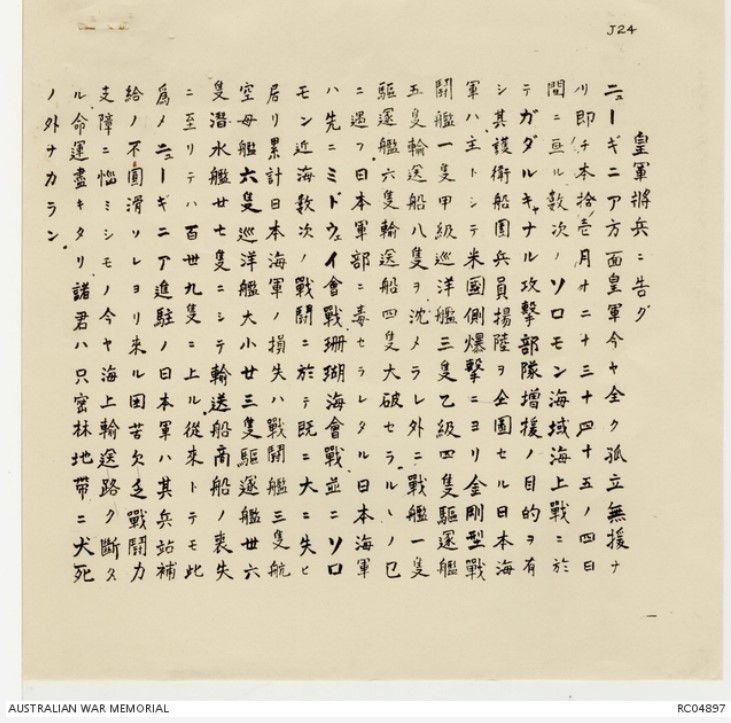 J24
皇軍將兵ニ告グ
ニューギニア方面皇軍今ヤ全ク孤立無援ナ
リ即チ本拾壱月十二十三十四十五ノ四日
間ニ亘ル数次ノソロモン海域海上戰ニ於
テガダルキャナル攻撃部隊增援ノ目的ヲ有
シ其護衛船團兵員揚陸ヲ企圖セル日本海
軍ハ主トシテ米國側爆撃ニヨリ金剛型戰
鬪艦一隻甲級巡洋艦三隻乙級四隻驅逐艦
五隻輸送船八隻ヲ沈メラレ外ニ戰艦一隻
驅逐艦六隻輸送船四隻大破セラルヽノ已
ニ遇フ日本軍部ニ毒セラレタル日本海軍
ハ先ニミドウェイ會戰珊瑚海會戰並ニソロ
モン近海数次ノ戰鬪ニ於テ既ニ大ニ失ヒ
居リ累計日本海軍ノ損失ハ戰鬪艦三隻航
空母艦六隻巡洋艦大小廿三隻驅逐艦廿六
隻潜水艦廿七隻ニシテ輸送船商船ノ喪失
ニ至リテハ百卅九隻ニ上ル從來トテモ此
爲メニューギニア進駐ノ日本軍ハ其兵站補
給ノ不圓滑ソレヨリ來ル困苦欠乏戰鬪力
支障ニ惱ミシモノ今ヤ海上輸送路ク斷タ
ル命運盡キタリ諸君ハ只密林地帶ニ犬死
ノ外ナカラン.
AUSTRALIAN WAR MEMORIAL
RC04897